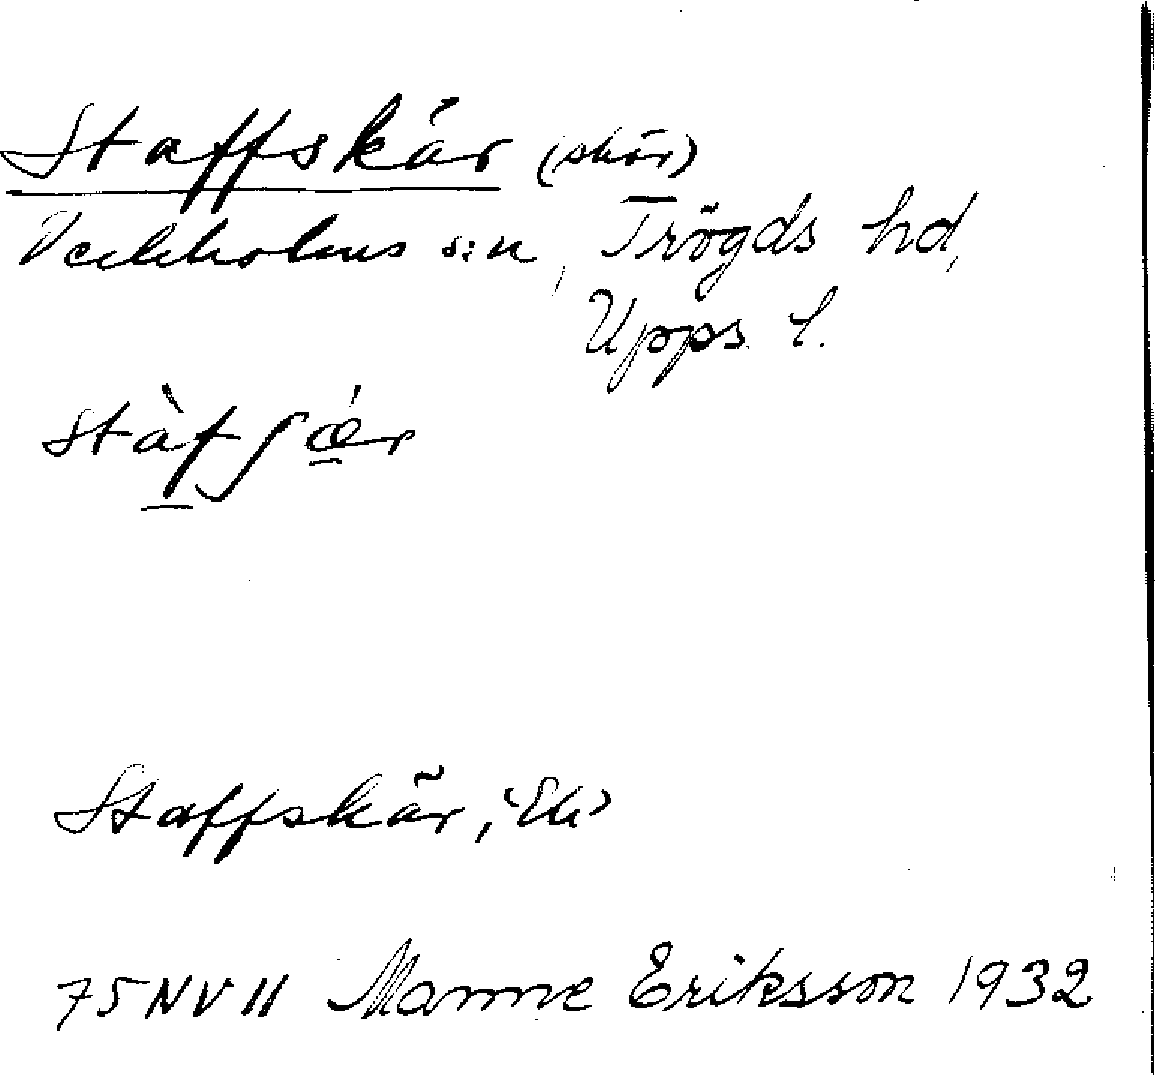 Staffskär (skär)
Veckholms s:n, Trögds hd,
Upps. l.
stàfʃǽr
Staffskär, 'Ek'
75 NV 11 Manne Eriksson 1932